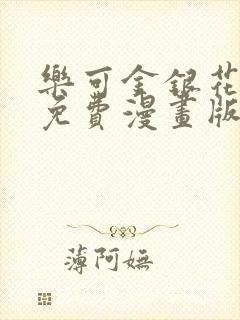 樂可金銀花
免費漫畫版
薄阿嫵